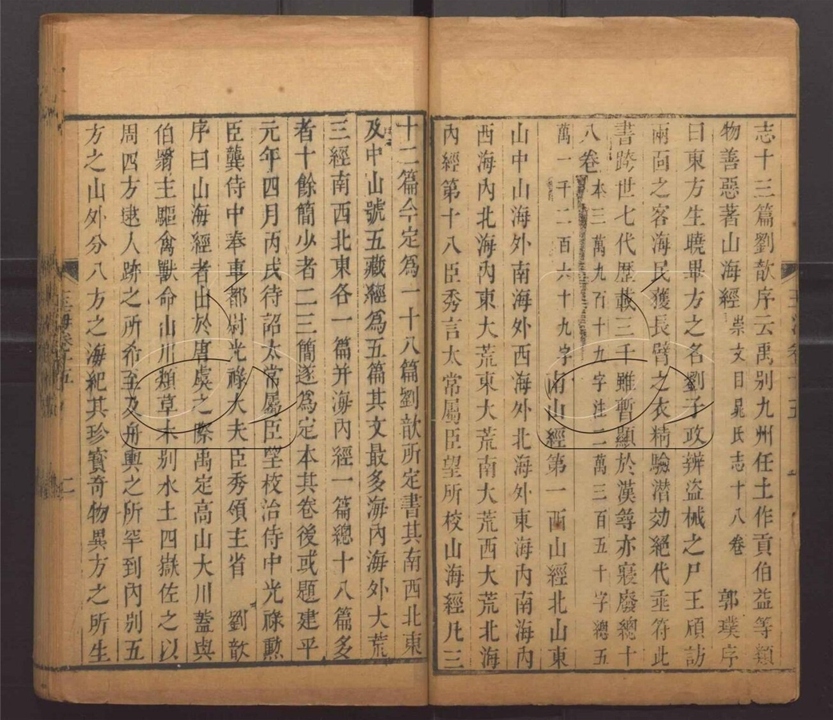 志十三篇劉歆序云禹別九州任土作貢伯益等類
物善惡著山海經崇文目晁氏志十八卷　郭璞序
曰東方生曉畢方之名劉子政辨盜械之尸王頎訪
兩面之客海民獲長臂之衣精驗潛効絕代乖符此
書跨世七代歷載三千雖暫顯於漢尋亦寢廢總十
八卷本三萬九百十九字注二萬三百五十字總五
萬一千二百六十九字南山經第一西山經北山東
山中山海外南海外西海外北海外東海內南海內
西海內北海內東大荒東大荒南大荒西大荒北海
內經第十八臣秀言太常屬臣望所校山海經凡三
十二篇今定為一十八篇劉歆所定書其南西北東
及中山號五藏經為五篇其文最多海內海外大荒
三經南西北東各一篇并海內經一篇總十八篇多
者十餘簡少者二三簡遂為定本其卷後或題建平
元年四月丙戌待詔太常屬臣望校治侍中光祿勳
臣龔侍中奉車都尉光祿大夫臣秀領主省　劉歆
序曰山海經者出於唐虞之際禹定高山大川蓋與
伯翳主驅禽獸命山川類草木別水土四嶽佐之以
周四方逮人跡之所希至及舟輿之所罕到內別五
方之山外分八方之海紀其珍寶奇物異方之所生
玉海卷十五
二